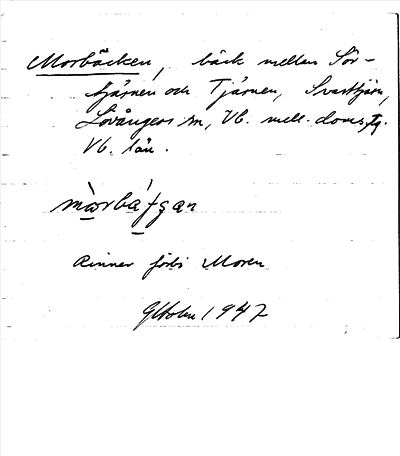 Morbäcken, bäck mellan Sör-
tjärnen och Tjärnen, Svarttjärn,
Lövångers sn, Vb. mell. doms.
Vb. län.
Rinner förbi Moren
GHolm 1947